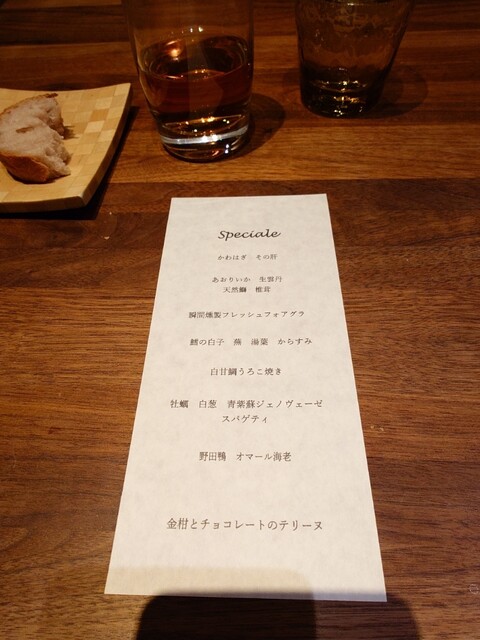 Speciale
かわはぎ　その肝
あおりいか　生雲丹
天然鰤　椎茸
瞬間燻製フレッシュフォアグラ
鱈の白子　蕪　湯葉　からすみ
白甘鯛うろこ焼き
牡蠣　白葱　青紫蘇ジェノヴェーゼ
スパゲティ
野田鴨　オマール海老
金柑とチョコレートのテリーヌ